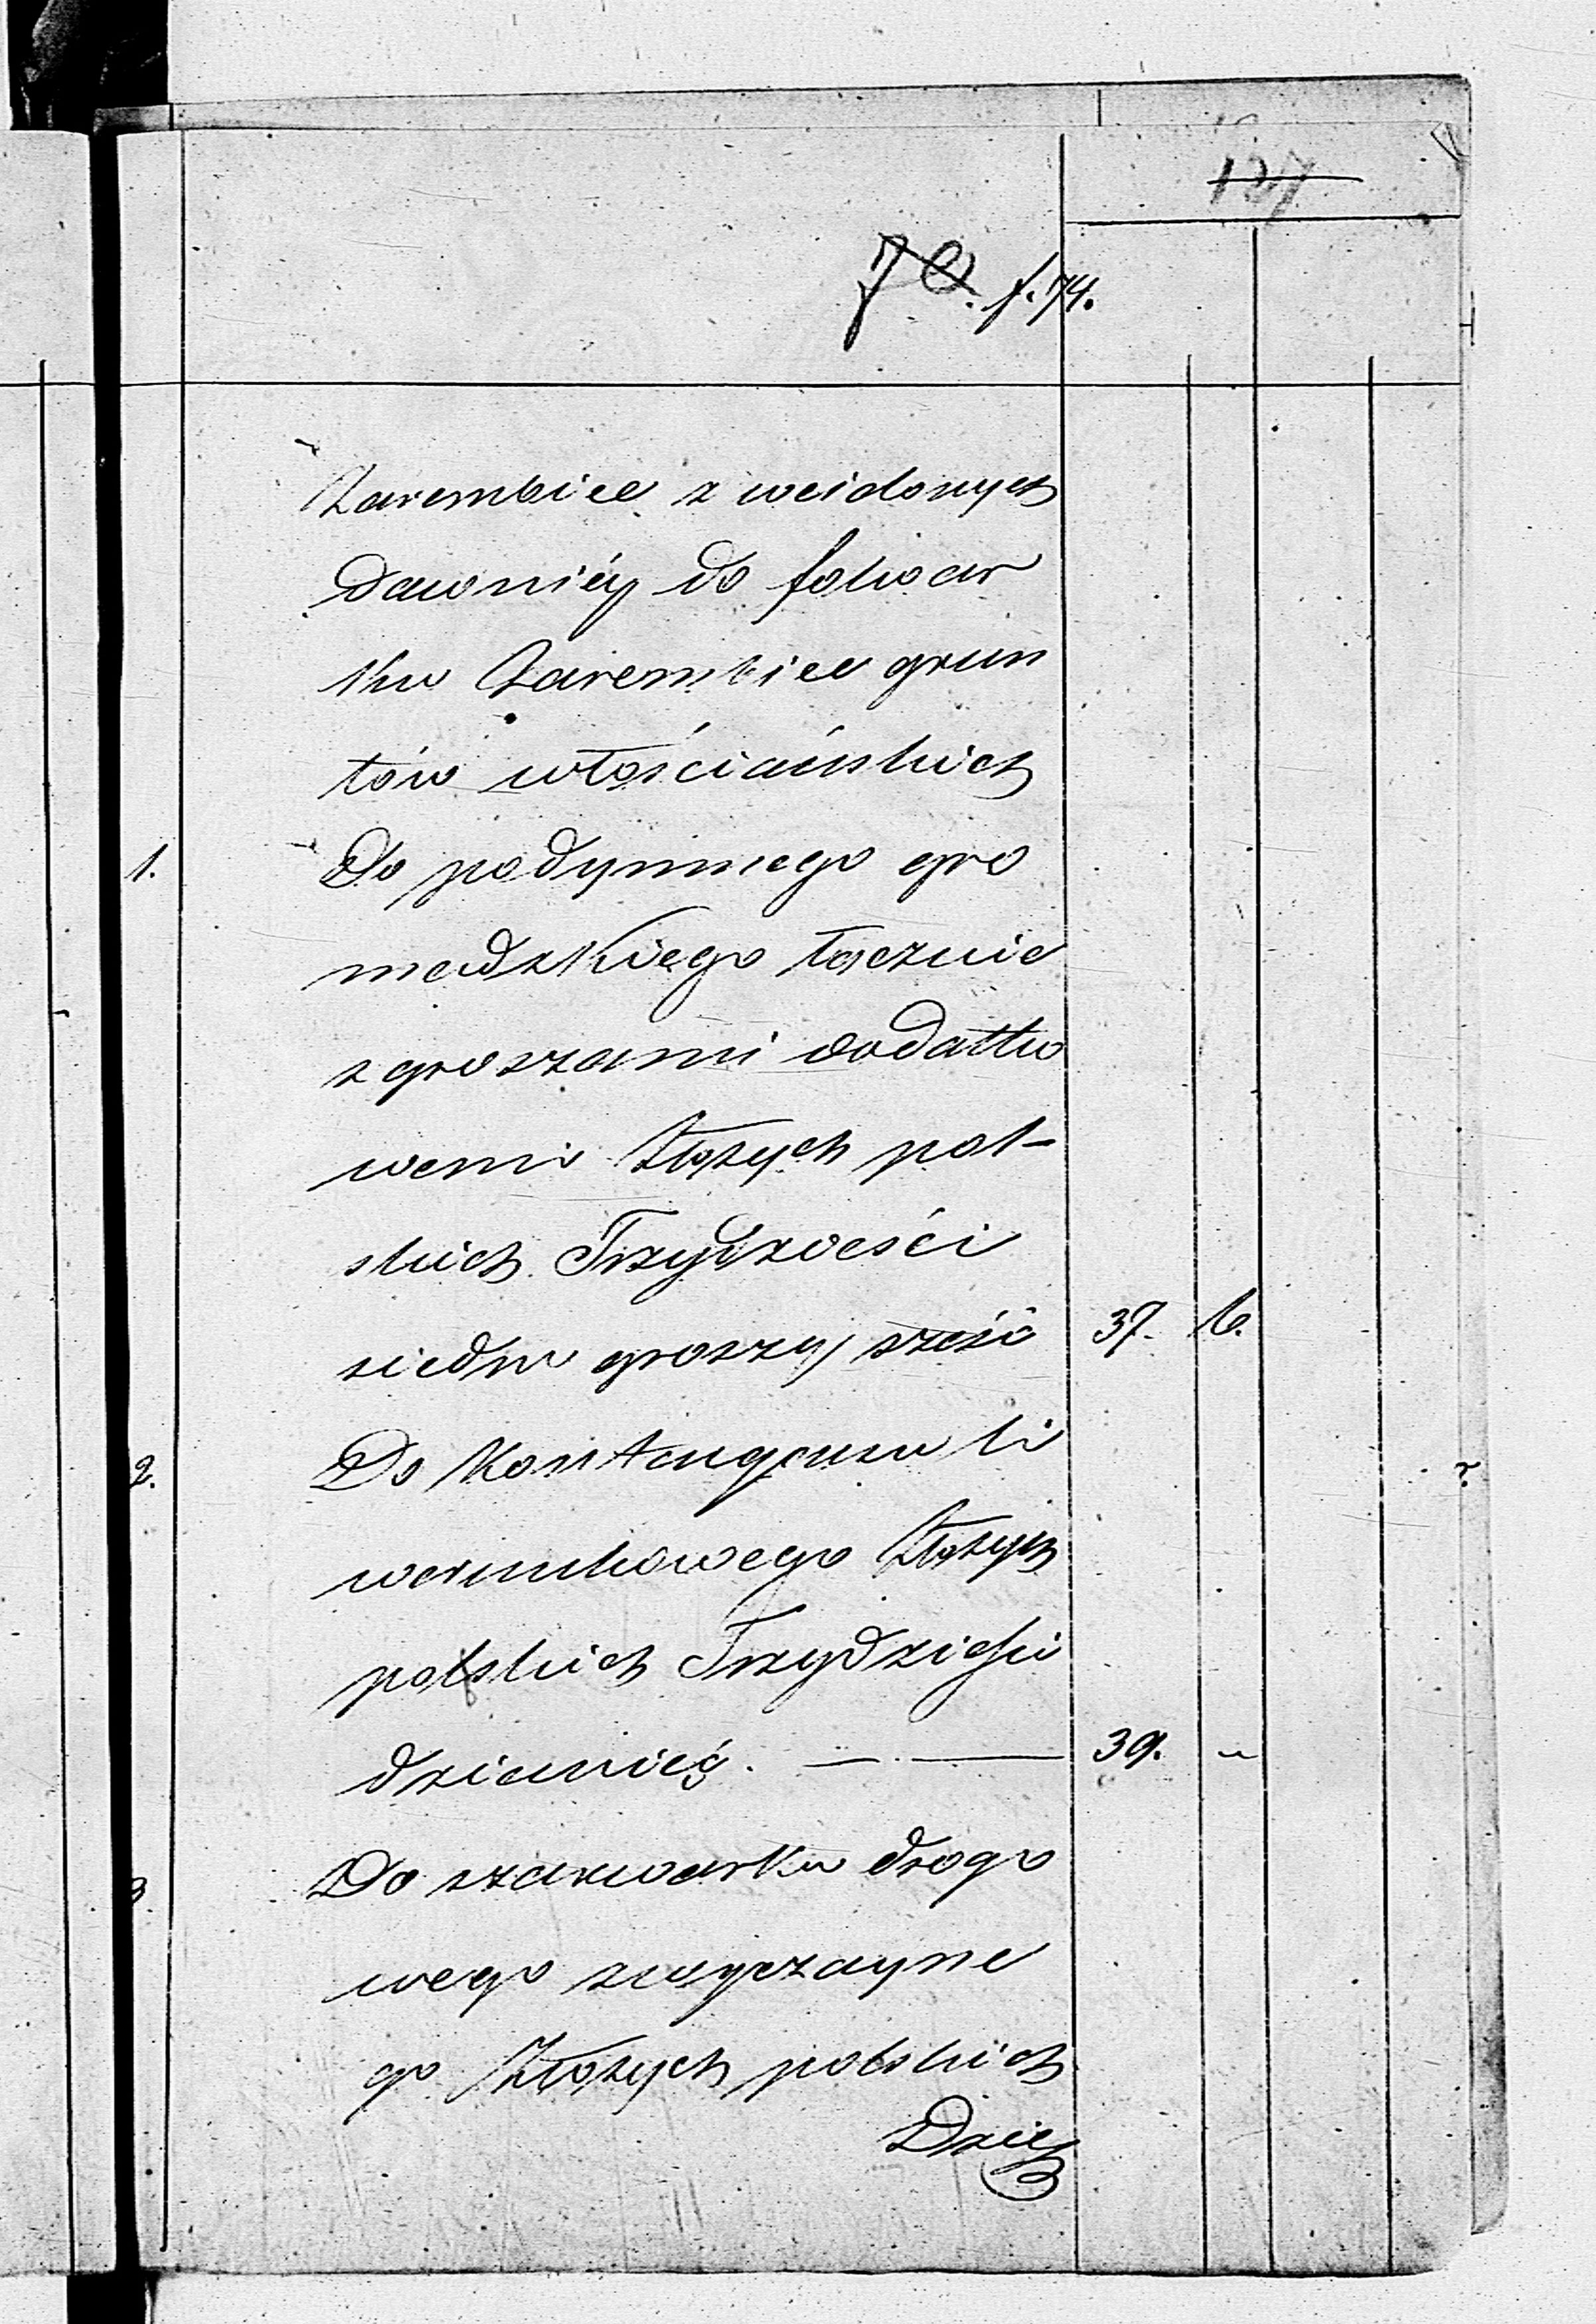 137
70. f. 74.
Zarembice z weidonych
dawniéy do folwar
ku Zarembice grun
tów włościańskich
1. Do podymnego gro
madzkiego łącznie
z groszami dodatko
wemi Złotych pol-
skich Trzydzieści
siedm groszy sześć 37. 6.
2. Do Kontyngensu li
werunkowego Złotych
polskich Trzydzieści
dziewięć. — — 39. "
3. Do szarwarku drogo
wego zwyczayne
go Złotych polskich
Dzie